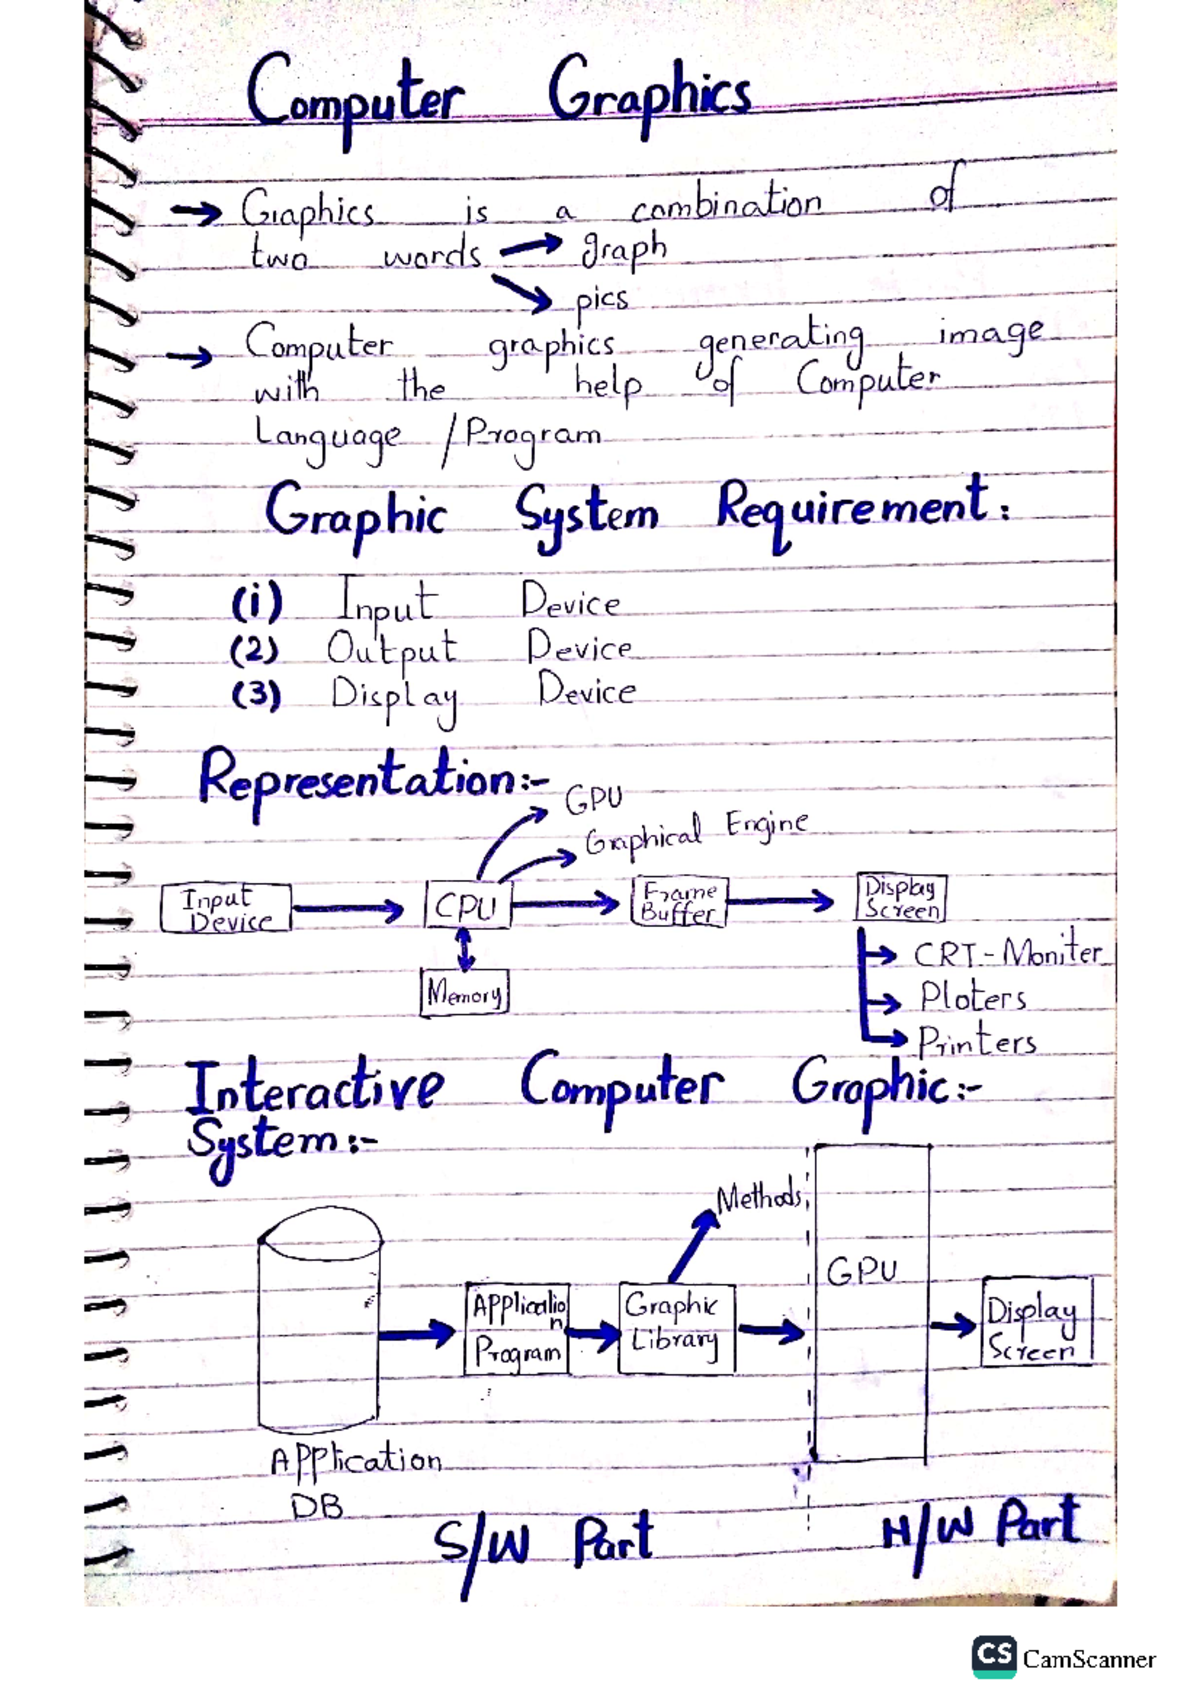 Computer Graphics
→ Graphics is a combination of
two words → graph
→ pics
→ Computer graphics generating image
with the help of Computer
Language / Program
Graphic System Requirement:
(i) Input Device
(2) Output Device
(3) Display Device
Representation:-
GPU
Graphical Engine
Input
Device
CPU
Frame
Buffer
Display
Screen
Memory
CRT-Moniter
Ploters
Printers
Interactive Computer Graphic:-
System:-
Methods
GPU
Application
Program
Graphic
Library
Display
Screen
Application
DB
S/W Part
H/W Part
CS CamScanner